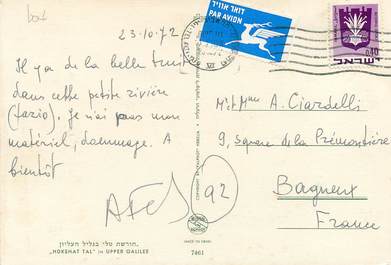 bort
23.10.72
Il y a de la belle truite
dans cette petite rivière
(fario). Je n'ai pas mon
matériel, dommage. A
bientôt
92
חורשת טלי בגליל העליון
"HORSHAT TAL" in UPPER GALILEE
דואר אויר
PAR AVION
0.40
ישראל
Mr et Mme A. Ciardelli
9, Square de la Prémontière
Bagneux
France
MADE IN ISRAEL
7461